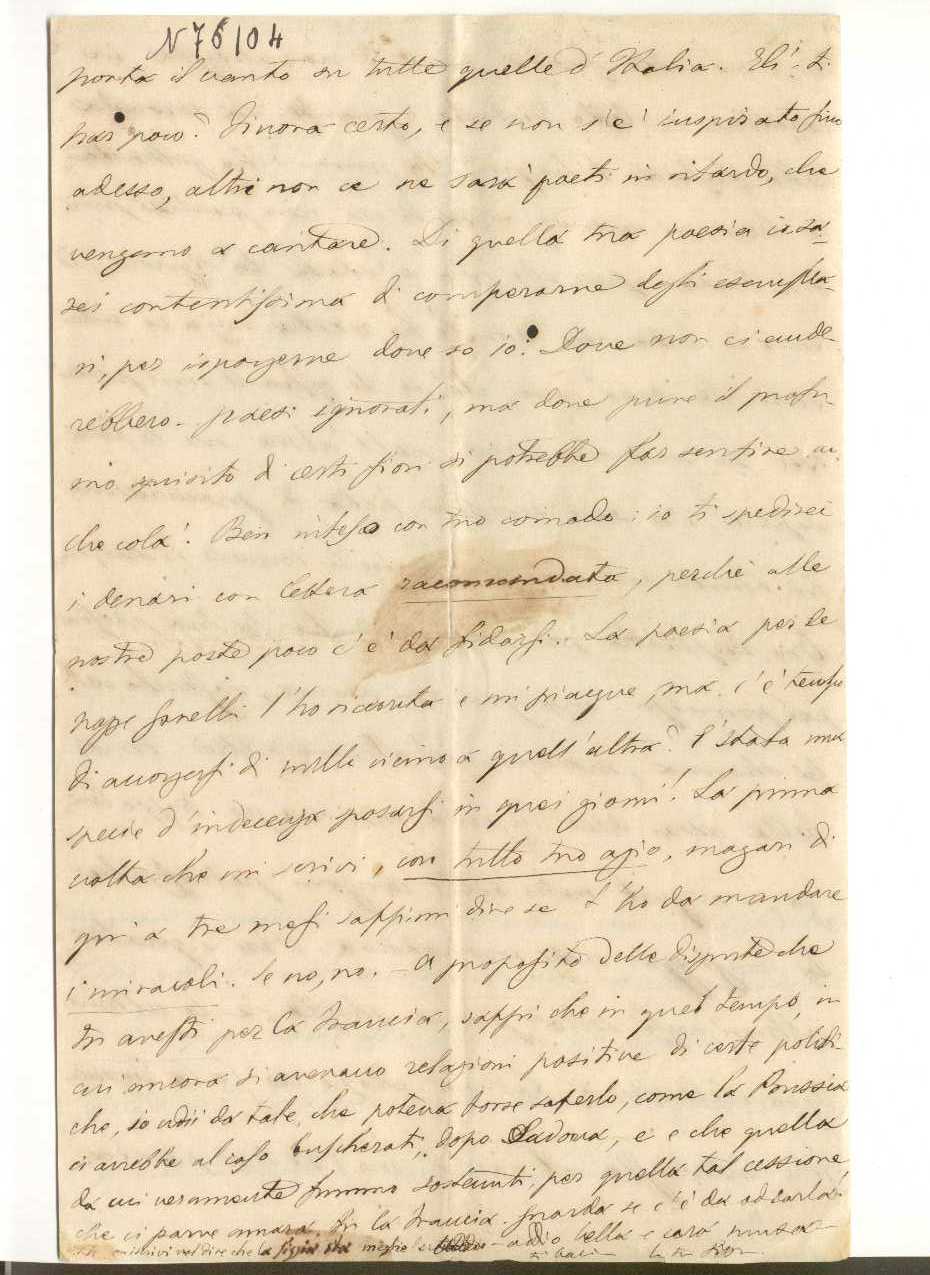 N 76104
porta il vanto su tutte quelle d'Italia. Eh! ti
par poco? Finora certo, e se non s'è inspirato fino
adesso, altri non ce ne sarà poeti in ritardo, che
vengano a cantare. Di quella tua poesia io sa-
rei contentissima di comperarne degli esempla-
ri, per isporgerne dove so io! Dove non ci ande-
rebbero. paesi ignorati, ma dove pure il profu-
mo squisito di certi fiori si potrebbe far sentire an-
che colà! Ben inteso con tuo comodo: io ti spedirei
i denari con lettera racomandata, perchè alle
nostre poste poco c'è da fidarsi. La poesia per le
nozze l'ho ricevuta e mi piacque, ma c'è tempo
di accorgersi di stelle vicino a quell'altra? È stata una
specie d'indecenza sposarsi in quei giorni! La prima
volta che mi scrivi, con tutto tuo agio, magari di
qui a tre mesi sappimi dire se t'ho da mandare
i miracoli. Se no, no. - A proposito delle dispute che
tu avesti per la Francia, sappi che in quel tempo, in
cui ancora si avevano relazioni positive di certe politi-
che, io udii da tale, che poteva forse saperlo, come la Prussia
ci avrebbe al caso buscherati, dopo Sadova, e che quella
da cui veramente fummo sostenuti, per quella tal cessione,
che ci parve amara, fu la Francia. guarda se c'è da odiarla!
mi scrivi nel dire che la figlia sta meglio - addio bella e cara
ti bacio la tua